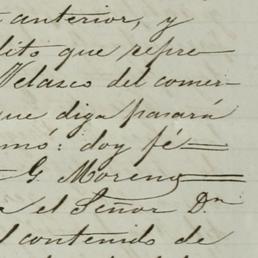 anterior, y
lito que repre
Velasco del comer-
que diga pasará
mó: doy fé
G. Moreno
a el Señor Dn
l contenido de